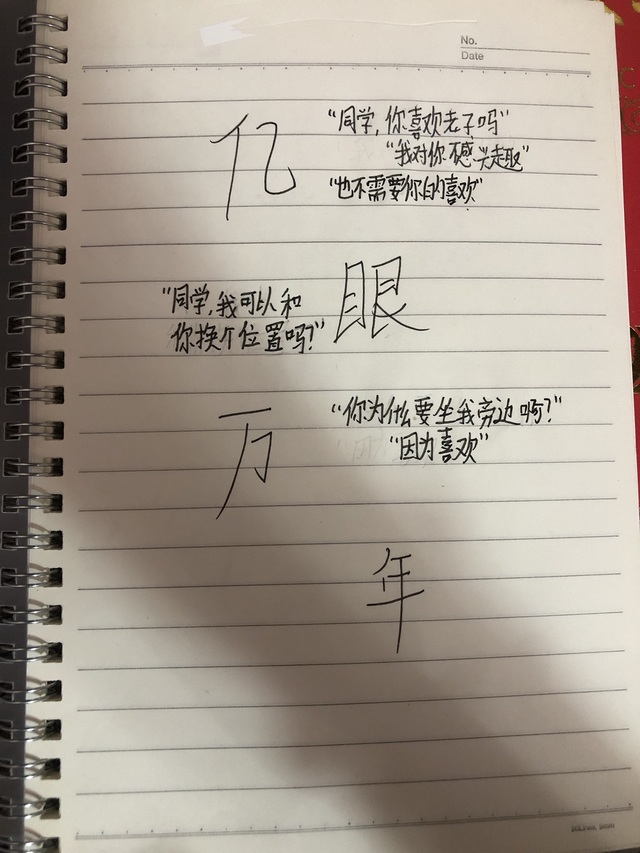 No.
Date
亿
"同学,你喜欢老子吗"
"我对你不感兴趣"
"也不需要你的喜欢"
眼
"同学,我可以和
你换个位置吗?"
万
"你为什么要坐我旁边啊?"
"因为喜欢"
年